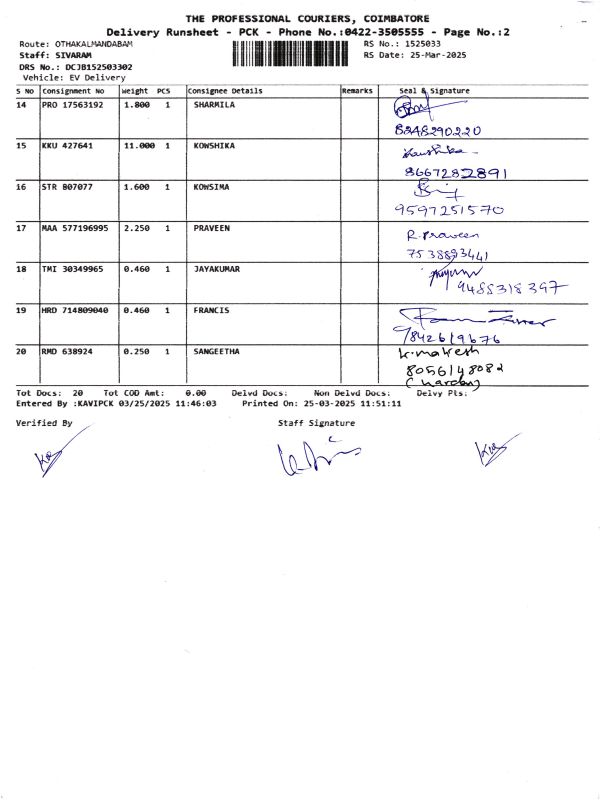 THE PROFESSIONAL COURIERS, COIMBATORE
Delivery Runsheet - PCK - Phone No.:0422-3505555 - Page No.:2
Route: OTHAKALMANDABAM RS No.: 1525033
Staff: SIVARAM RS Date: 25-Mar-2025
DRS No.: DCJB152503302
Vehicle: EV Delivery
S NO Consignment No Weight PCS Consignee Details Remarks Seal & Signature
14 PRO 17563192 1.800 1 SHARMILA
8248290220
15 KKU 427641 11.000 1 KOWSHIKA Kaushika
8667282891
16 STR 807077 1.600 1 KOWSIMA
9597251570
17 MAA 577196995 2.250 1 PRAVEEN R. Praveen
7538893441
18 TMI 30349965 0.460 1 JAYAKUMAR
9488318397
19 HRD 714809040 0.460 1 FRANCIS
9842619676
20 RMD 638924 0.250 1 SANGEETHA K. makesh
8056148082
Tot Docs: 20 Tot COD Amt: 0.00 Delvd Docs: Non Delvd Docs: Delvy Pts:
Entered By :KAVIPCK 03/25/2025 11:46:03 Printed On: 25-03-2025 11:51:11
Verified By Staff Signature